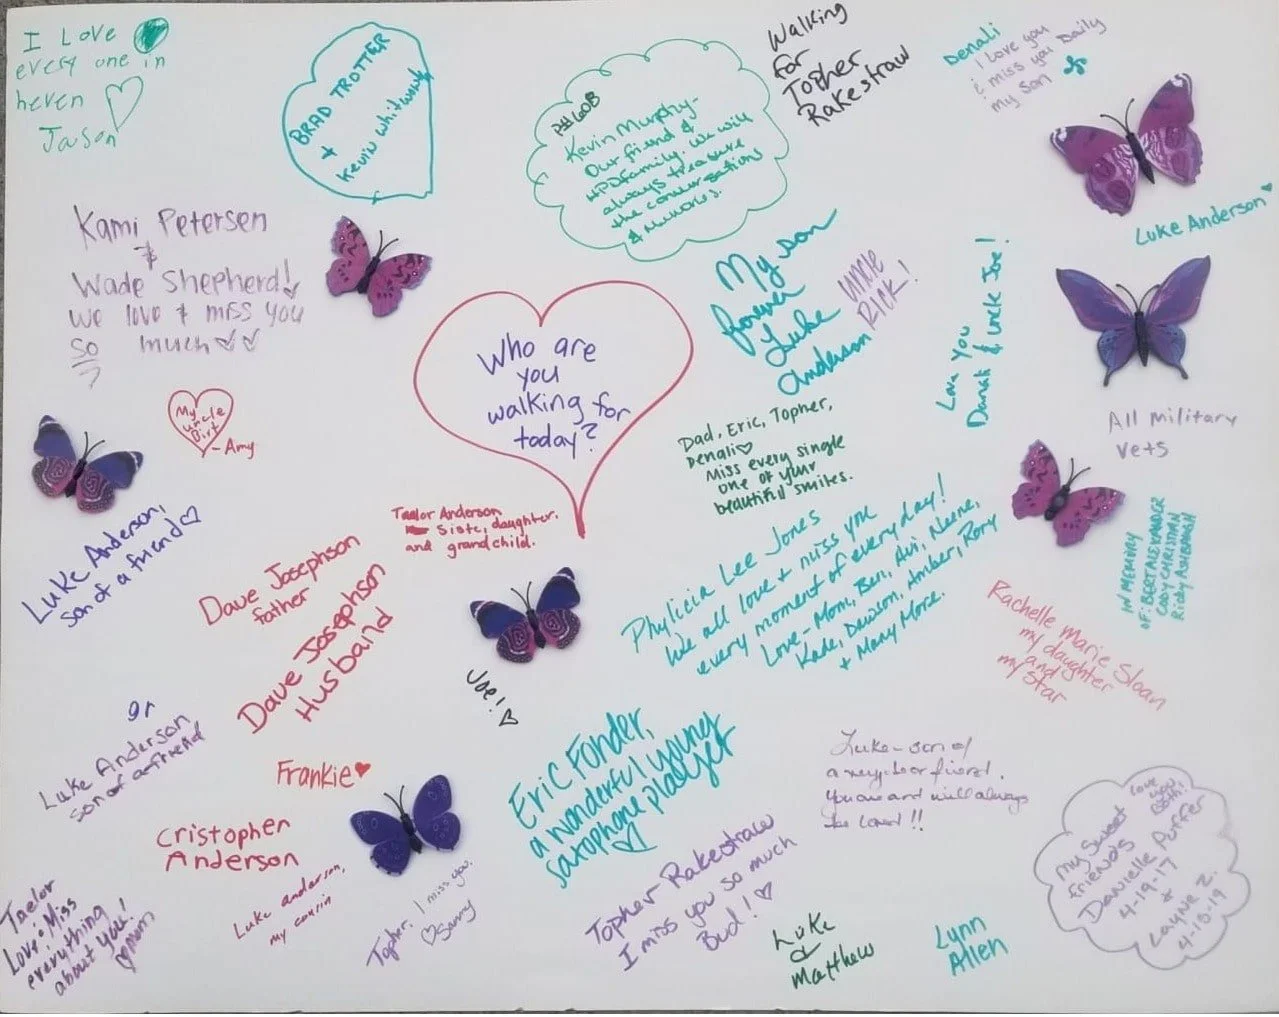 I Love
every one in
heven
Jason
BRAD TROTTER
+
Kevin Whitworth
PH 60B
Kevin Murphy-
Our friend &
HPD family. We will
always treasure
the conversations
& memories.
Walking
for
Topher
Rakestraw
Denali
I love you
i miss you Daily
my son
Luke Anderson
Kami Petersen
&
Wade Shepherd!
We love & miss you
so much
My son
forever
Luke
Anderson
UNCLE
RICK!
Love You
Danah & Uncle Joe!
Who are
you
walking for
today?
My
uncle
Birt
- Amy
All military
vets
Dad, Eric, Topher,
Denali
Miss every single
one of your
beautiful smiles.
Taelor Anderson
Siste, daughter.
and grandchild.
Luke Anderson,
son of a friend
Dave Josephson
father
Dave Josephson
Husband
Phylicia Lee Jones
We all love & miss you
every moment of every day!
Love - Mom, Ben, Avi, Neene,
Kade, Dawson, Amber, Rory
+ Many More.
IN MEMORY
OF: BERT ALEXANDER
CODY CHRISTIAN
Ricky ASHBAUGH
Rachelle Marie Sloan
my daughter
and
my star
Joe!
Luke Anderson
son of a friend
Frankie
Eric Fonder,
a wonderful young
saxophone player
Luke - son of
a neighbor friend.
You are and will always
be loved!!
Love you
both!
My Sweet
friends
Danielle Puffer
4-19-17
&
Layne Z.
4-18-19
Cristopher
Anderson
Luke anderson,
my cousin
Topher, I miss you.
Sunny
Topher Rakestraw
I miss you so much
Bud!
Taelor
Love & Miss
everything
about you!
Mom
Luke
&
Matthew
Lynn
Allen